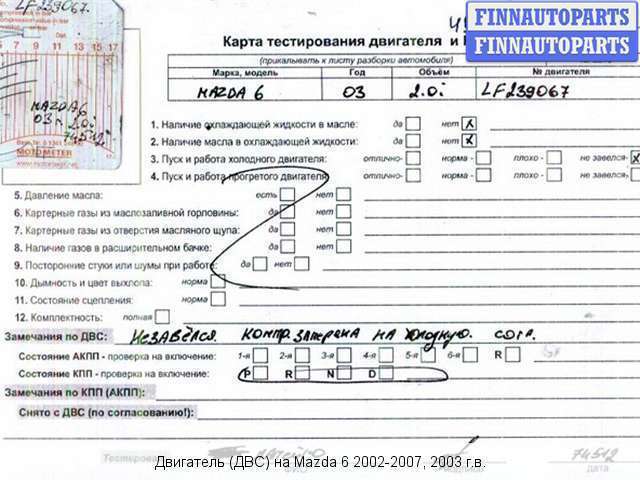 LF239067.
FINNAUTOPARTS
FINNAUTOPARTS
Карта тестирования двигателя и
(прикалывать к листу разборки автомобиля)
Марка, модель Год Объём № двигателя
MAZDA 6 03 2.0i LF239067
9 11 13 15 17
MAZDA 6
03 г. 2.0i
74512
MOTOMETER
1. Наличие охлаждающей жидкости в масле: да нет X
2. Наличие масла в охлаждающей жидкости: да нет X
3. Пуск и работа холодного двигателя: отлично- норма - плохо - не завелся- X
4. Пуск и работа прогретого двигателя: отлично- норма - плохо - не завелся-
5. Давление масла: есть нет
6. Картерные газы из маслозаливной горловины: да нет
7. Картерные газы из отверстия масляного щупа: да нет
8. Наличие газов в расширительном бачке: да нет
9. Посторонние стуки или шумы при работе: да нет
10. Дымность и цвет выхлопа: норма
11. Состояние сцепления: норма
12. Комплектность: полная
Замечания по ДВС: Незавёлся. Контр. замерена на холодную. согл.
Состояние АКПП - проверка на включение: 1-я 2-я 3-я 4-я 5-я 6-я R
Состояние КПП - проверка на включение: P R N D
Замечания по КПП (АКПП):
Снято с ДВС (по согласованию!):
Тестировал
74512
дата
Двигатель (ДВС) на Mazda 6 2002-2007, 2003 г.в.